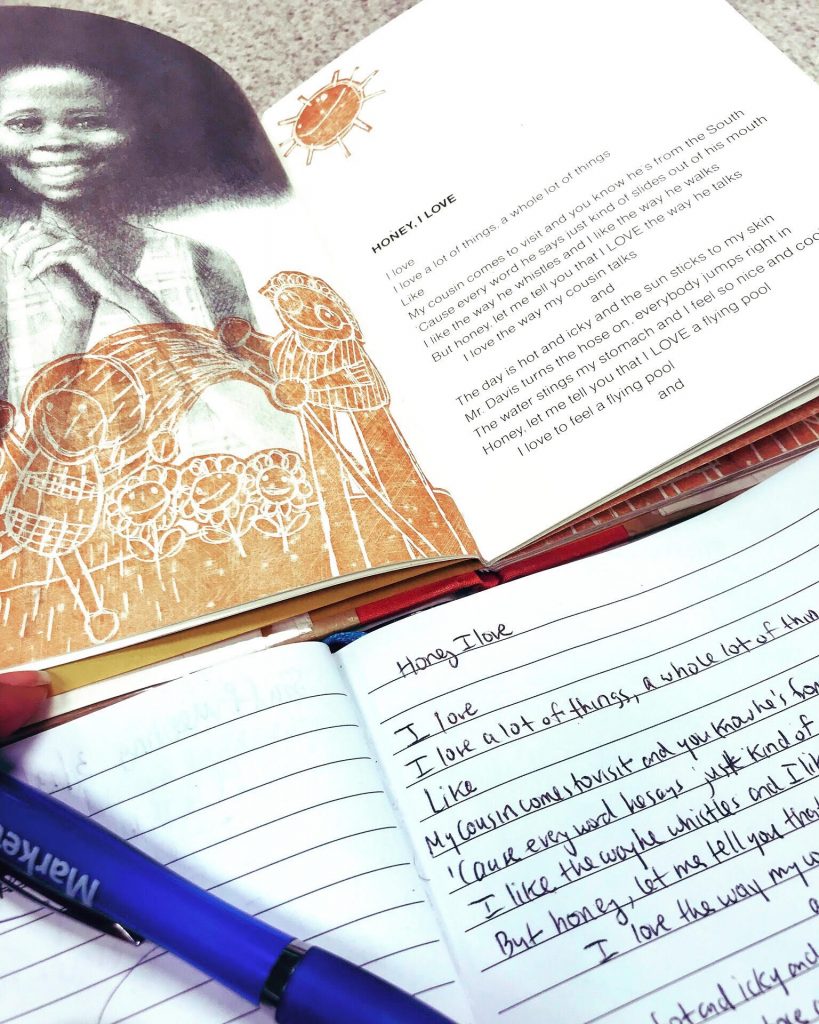 HONEY, I LOVE
I love
I love a lot of things, a whole lot of things
Like
My cousin comes to visit and you know he's from the South
Cause every word he says just kind of slides out of his mouth
I like the way he whistles and I like the way he walks
But honey, let me tell you that I LOVE the way he talks
I love the way my cousin talks
and
The day is hot and icky and the sun sticks to my skin
Mr. Davis turns the hose on, everybody jumps right in
The water stings my stomach and I feel so nice and cool
Honey, let me tell you that I LOVE a flying pool
I love to feel a flying pool
and
Honey I love
I love
I love a lot of things, a whole lot of thin
Like
My cousin comes to visit and you know he's from
'Cause every word he says just kind of
I like the way he whistles and I lik
But honey, let me tell you that
I love the way my co
a
hot and icky and
Marke